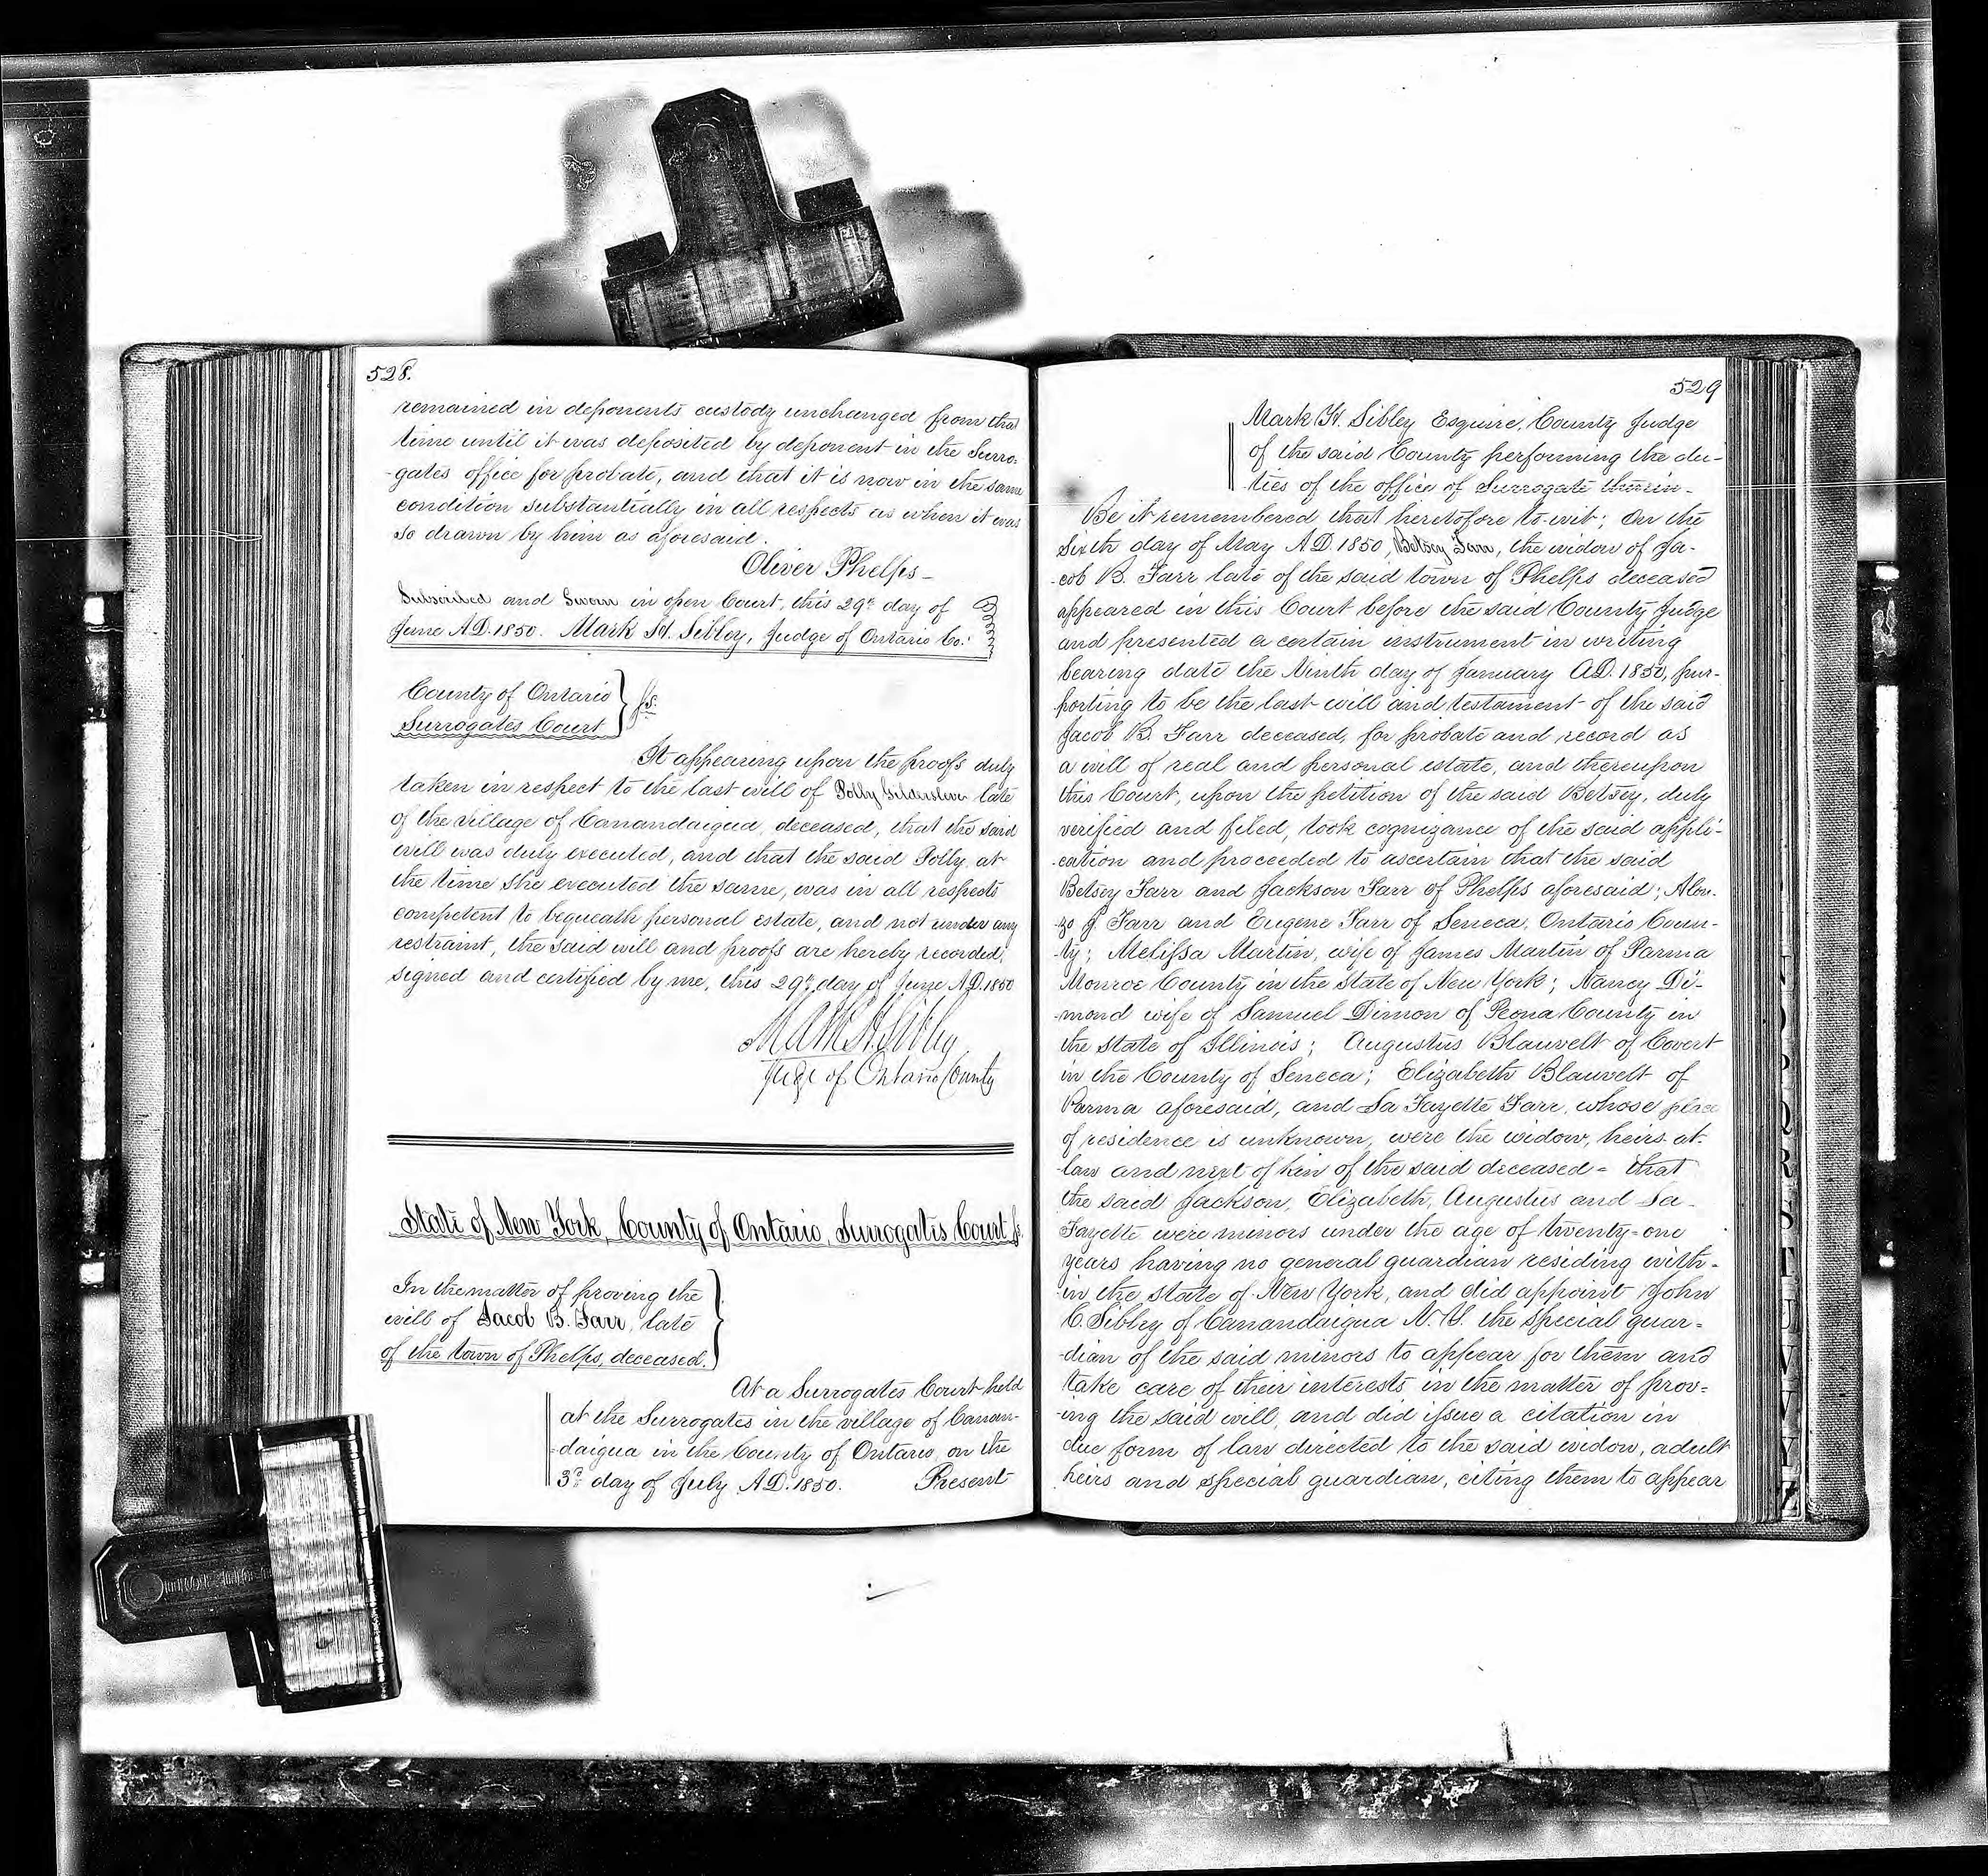 528.
remained in deponents custody unchanged from that
time until it was deposited by deponent in the Surro-
-gates office for probate, and that it is now in the same
condition substantially in all respects as when it was
so drawn by him as aforesaid.
Oliver Phelps-
Subscribed and Sworn in open Court, this 29th day of
June A.D. 1850. Mark H. Sibley, Judge of Ontario Co:
County of Ontario
Surrogates Court } ss:
It appearing upon the proofs duly
taken in respect to the last will of Polly Gildersleve late
of the village of Canandaigua, deceased, that the said
will was duly executed, and that the said Polly, at
the time she executed the same, was in all respects
competent to bequeath personal estate, and not under any
restraint, the said will and proofs are hereby recorded,
signed and certified by me, this 29th day of June A.D. 1850
Mark H. Sibley
Judge of Ontario County
State of New York, County of Ontario, Surrogates Court ss.
In the matter of proving the
will of Jacob B. Farr, late
of the town of Phelps, deceased. }
At a Surrogates Court held
at the Surrogates in the village of Canan-
-daigua in the County of Ontario, on the
3rd day of July A.D. 1850. Present
529
Mark H. Sibley Esquire, County Judge
of the said County performing the du-
-ties of the office of Surrogate therein-
Be it remembered that heretofore to-wit; On the
Sixth day of May A.D. 1850, Betsey Farr, the widow of Ja-
-cob B. Farr late of the said town of Phelps deceased
appeared in this Court before the said County Judge
and presented a certain instrument in writing
bearing date the Ninth day of January A.D. 1850, pur-
-porting to be the last will and testament of the said
Jacob B. Farr deceased, for probate and record as
a will of real and personal estate, and thereupon
this Court, upon the petition of the said Betsey, duly
verified and filed, took cognizance of the said appli-
-cation and proceeded to ascertain that the said
Betsey Farr and Jackson Farr of Phelps aforesaid; Alon-
-zo J. Farr and Eugene Farr of Seneca, Ontario Coun-
-ty; Melissa Martin, wife of James Martin of Parma
Monroe County in the State of New York; Nancy Di-
-mond wife of Samuel Dimon of Peona County in
the State of Illinois; Augustus Blauvelt of Covert
in the County of Seneca; Elizabeth Blauvelt of
Parma aforesaid, and La Fayette Farr, whose place
of residence is unknown, were the widow, heirs at-
-law and next of kin of the said deceased - that
the said Jackson, Elizabeth, Augustus and La-
Fayette were minors under the age of twenty-one
years having no general guardian residing with-
-in the state of New York, and did appoint John
C. Sibley of Canandaigua N.Y. the special guar-
-dian of the said minors to appear for them and
take care of their interests in the matter of prov-
-ing the said will, and did issue a citation in
due form of law directed to the said widow, adult
heirs and special guardian, citing them to appear
N
O
P
Q
R
S
T
U
V
W
Y
Z